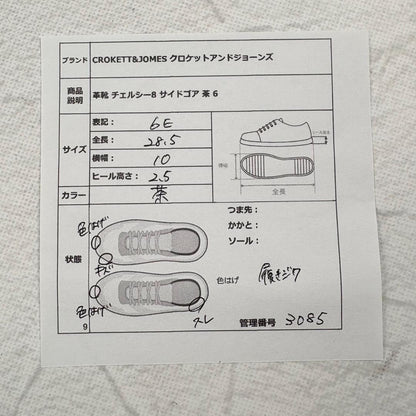 ブランド CROKETT&JOMES クロケットアンドジョーンズ
商品説明 革靴 チェルシー8 サイドゴア 茶 6
サイズ
表記： 6E
全長： 28.5
横幅： 10
ヒール高さ： 2.5
ヒール高さ
横幅
全長
カラー 茶
状態
色はげ
キズ
色はげ
スレ
つま先：
かかと：
ソール：
色はげ 履きジワ
9
管理番号 3085